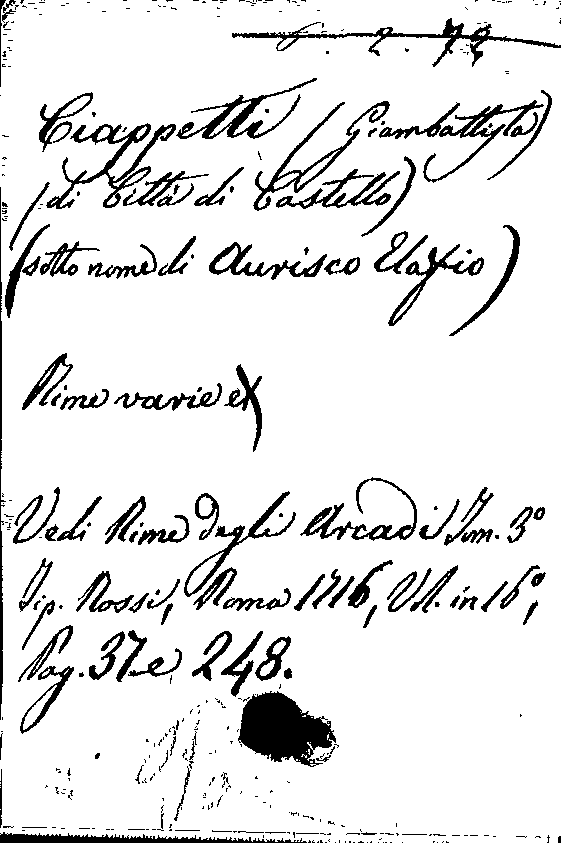 6. 2. 72
Ciappetti (Giambattista)
(di Città di Castello)
(sotto nome di Aurisco Elafio)
Rime varie
Vedi Rime degli Arcadi Tom. 3º
Tip. Rossi, Roma 1716, Vol. in 16º,
Pag. 37 e 248.